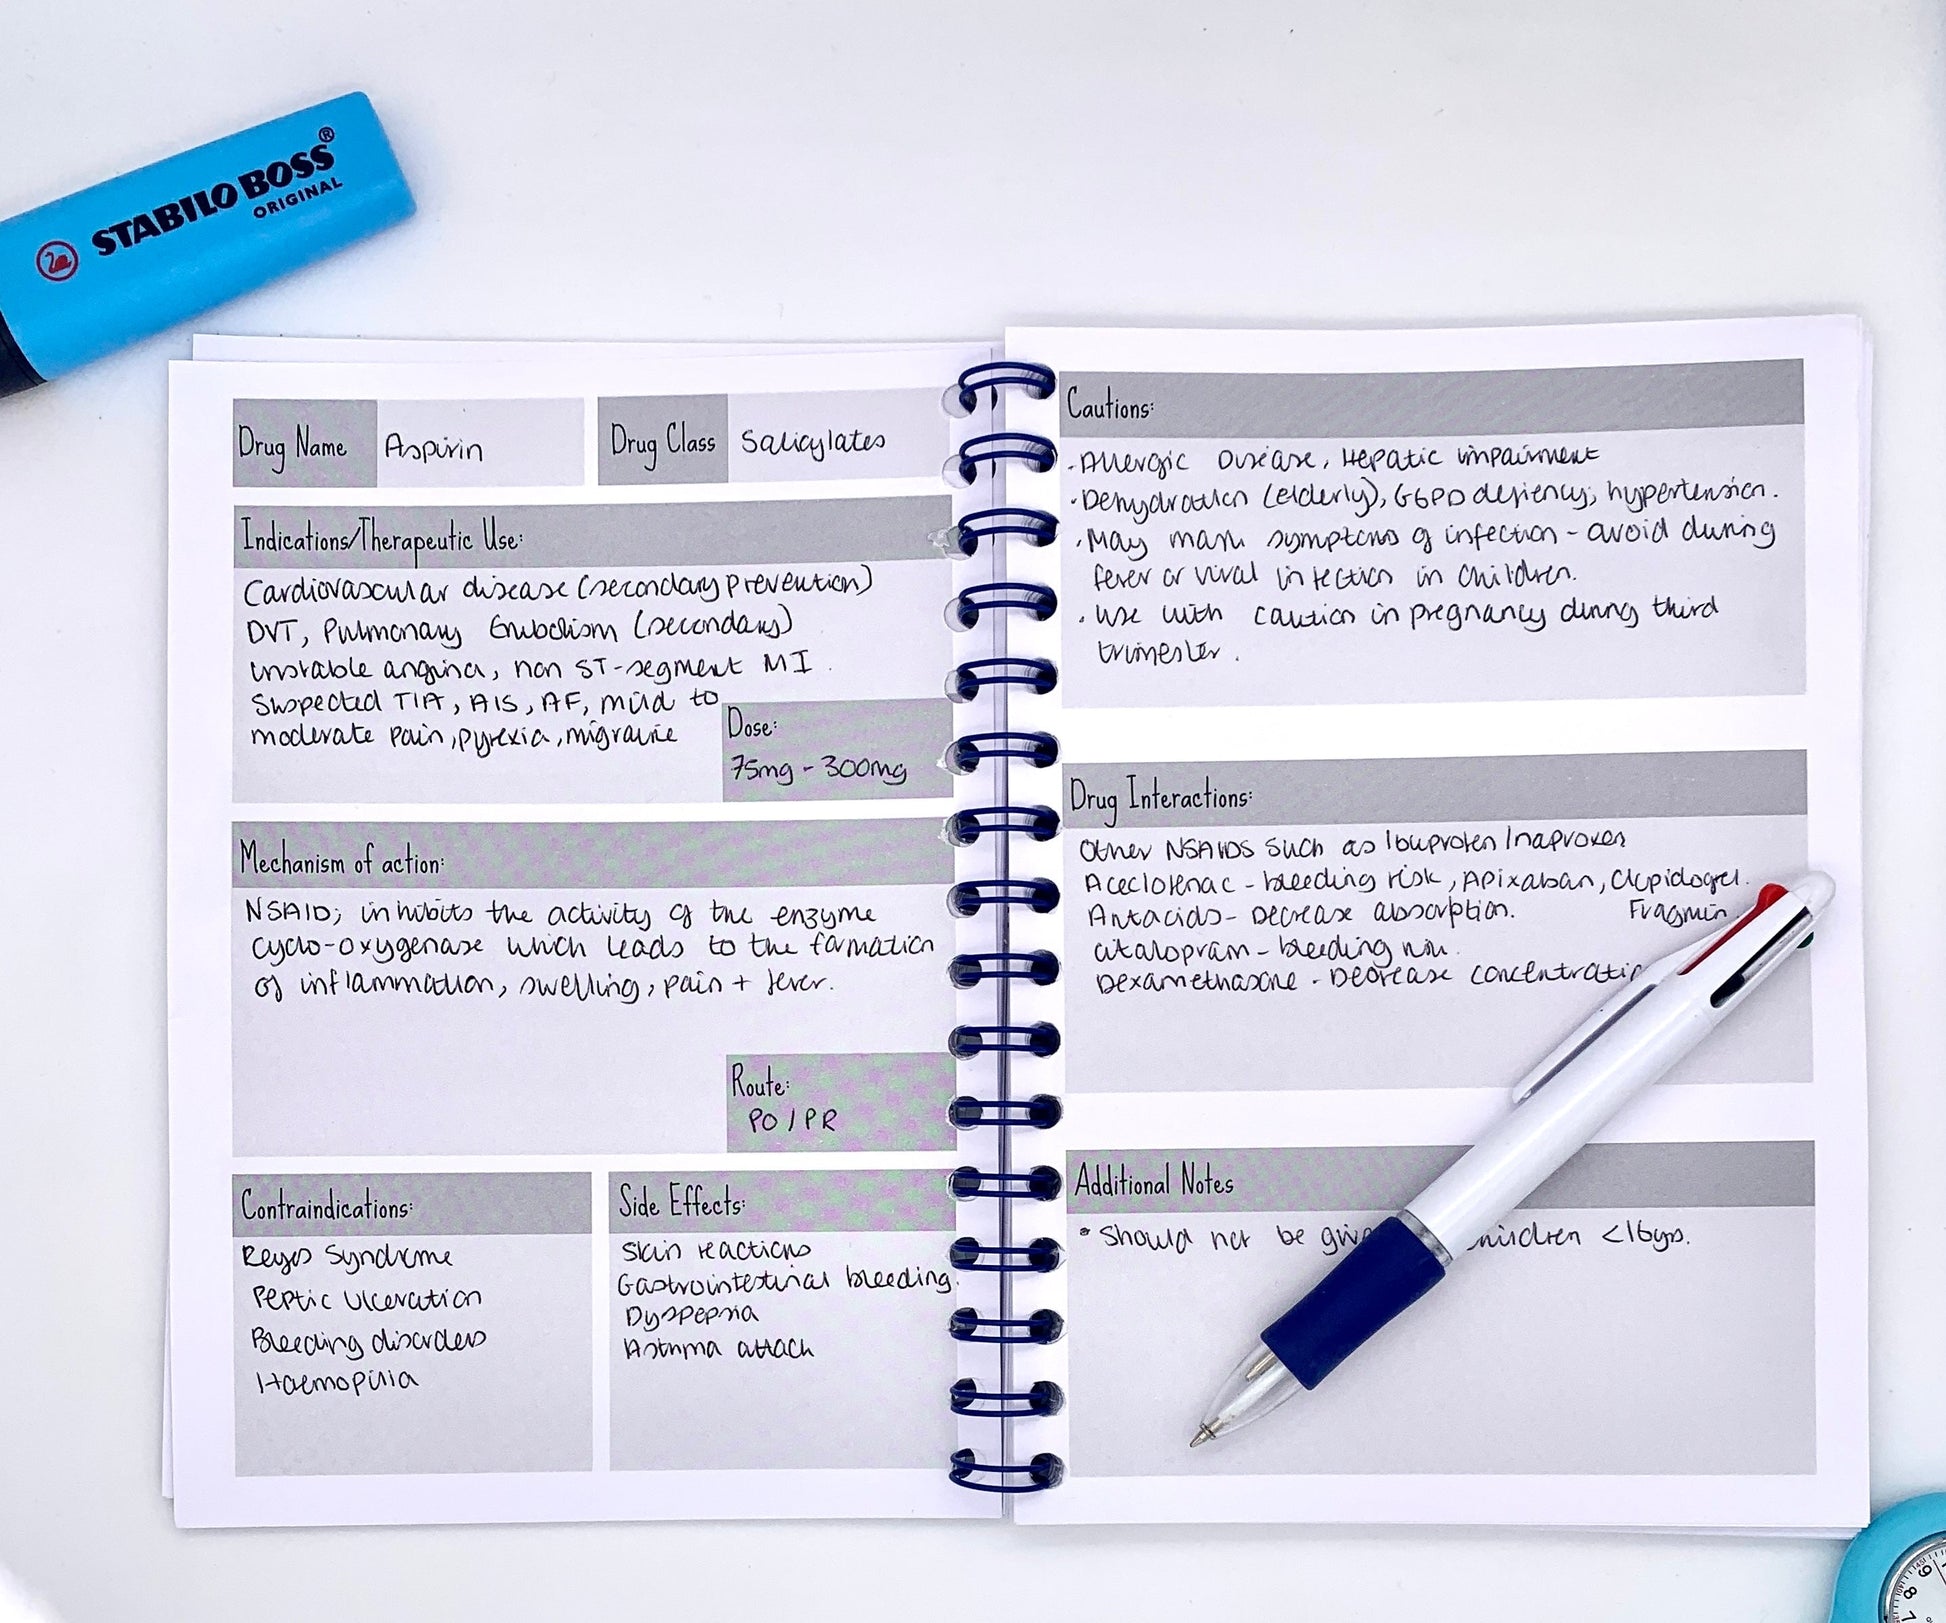 STABILO BOSS®
ORIGINAL
Drug Name Aspirin
Drug Class Salicylates
Indications/Therapeutic Use:
Cardiovascular disease (secondary prevention)
DVT, Pulmonary Embolism (secondary)
unstable angina, non ST-segment MI.
Suspected TIA, AIS, AF, mild to
moderate pain, pyrexia, migraine
Dose:
75mg - 300mg
Mechanism of action:
NSAID; inhibits the activity of the enzyme
cyclo-oxygenase which leads to the formation
of inflammation, swelling, pain + fever.
Route:
PO / PR
Contraindications:
Reyes Syndrome
Peptic Ulceration
Bleeding disorders
Haemophilia
Side Effects:
Skin reactions
Gastrointestinal bleeding.
Dyspepsia
Asthma attack
Cautions:
· Allergic Disease, Hepatic impairment
· Dehydration (elderly), G6PD defiency, hypertension.
· May mask symptoms of infection - avoid during
fever or viral infection in children.
· Use with caution in pregnancy during third
trimester.
Drug Interactions:
Other NSAIDS such as Ibuprofen / naproxen
Aceclofenac - bleeding risk, Apixaban, Clopidogrel.
Antacids - Decrease absorption. Fragmin.
citalopram - bleeding risk.
Dexamethasone - Decrease
Additional Notes
* Should not be children <16yrs.
9
8